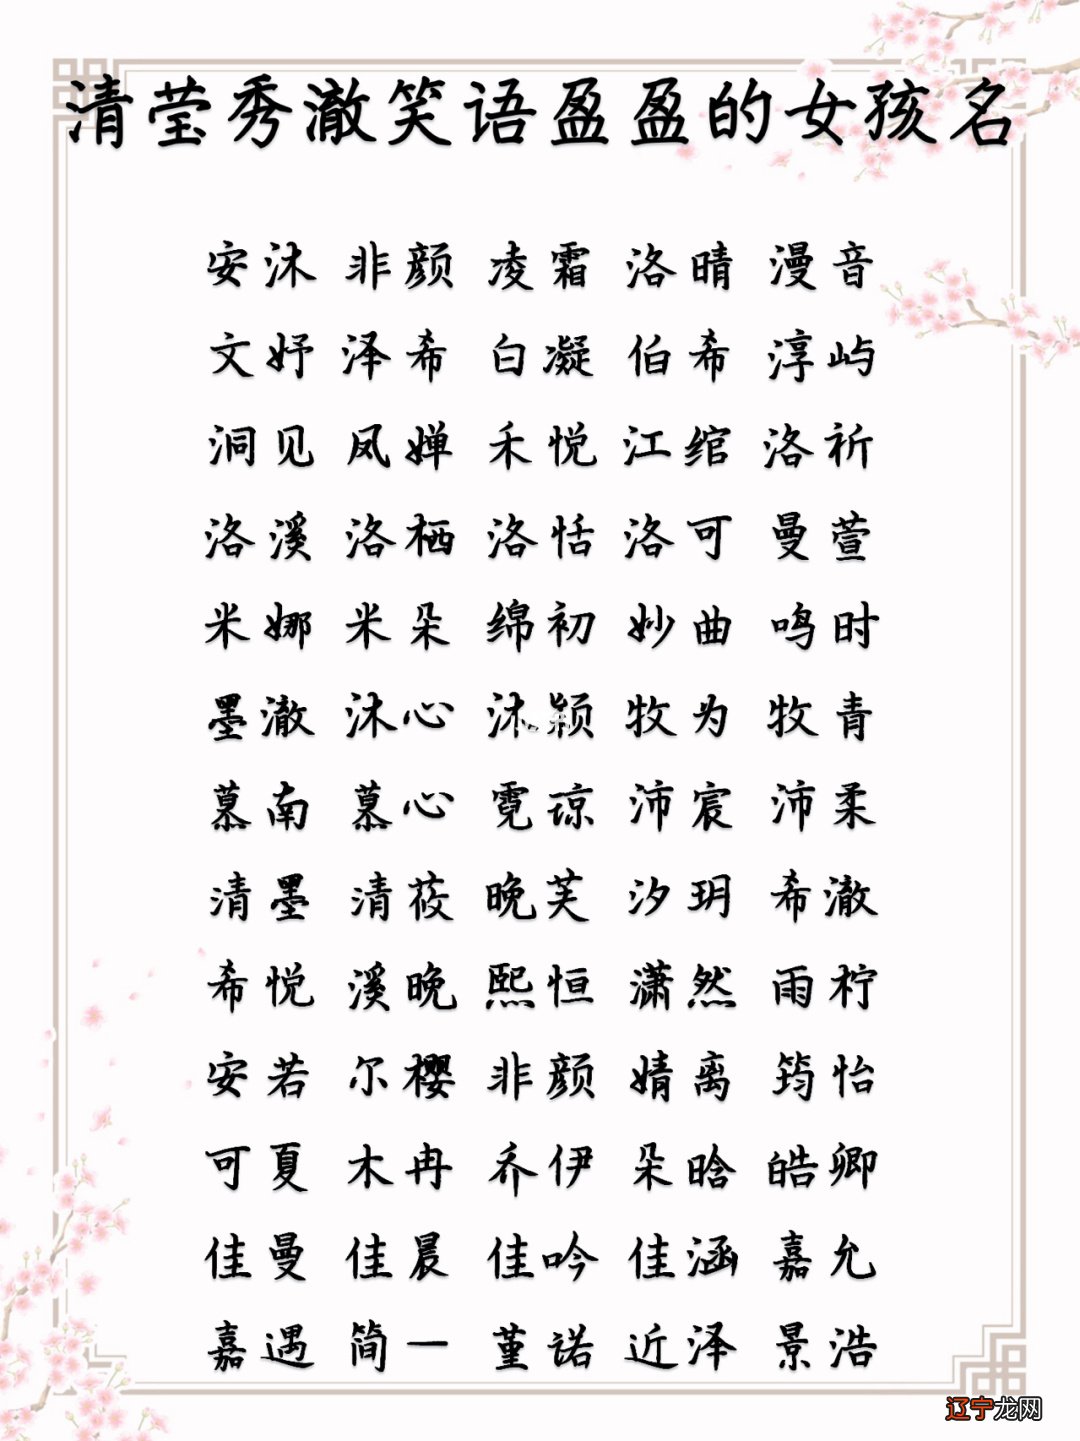 清莹秀澈笑语盈盈的女孩名
安沐 非颜 凌霜 洛晴 漫音
文妤 泽希 白凝 伯希 淳屿
洞见 凤婵 禾悦 江绾 洛祈
洛溪 洛栖 洛恬 洛可 曼萱
米娜 米朵 绵初 妙曲 鸣时
墨澈 沐心 沐颖 牧为 牧青
慕南 慕心 霓琼 沛宸 沛柔
清墨 清莜 晚芙 汐玥 希澈
希悦 溪晚 熙恒 潇然 雨柠
安若 尔樱 非颜 婧离 筠怡
可夏 木冉 乔伊 朵晗 皓卿
佳曼 佳晨 佳吟 佳涵 嘉允
嘉遇 简一 堇诺 近泽 景浩
辽宁龙网